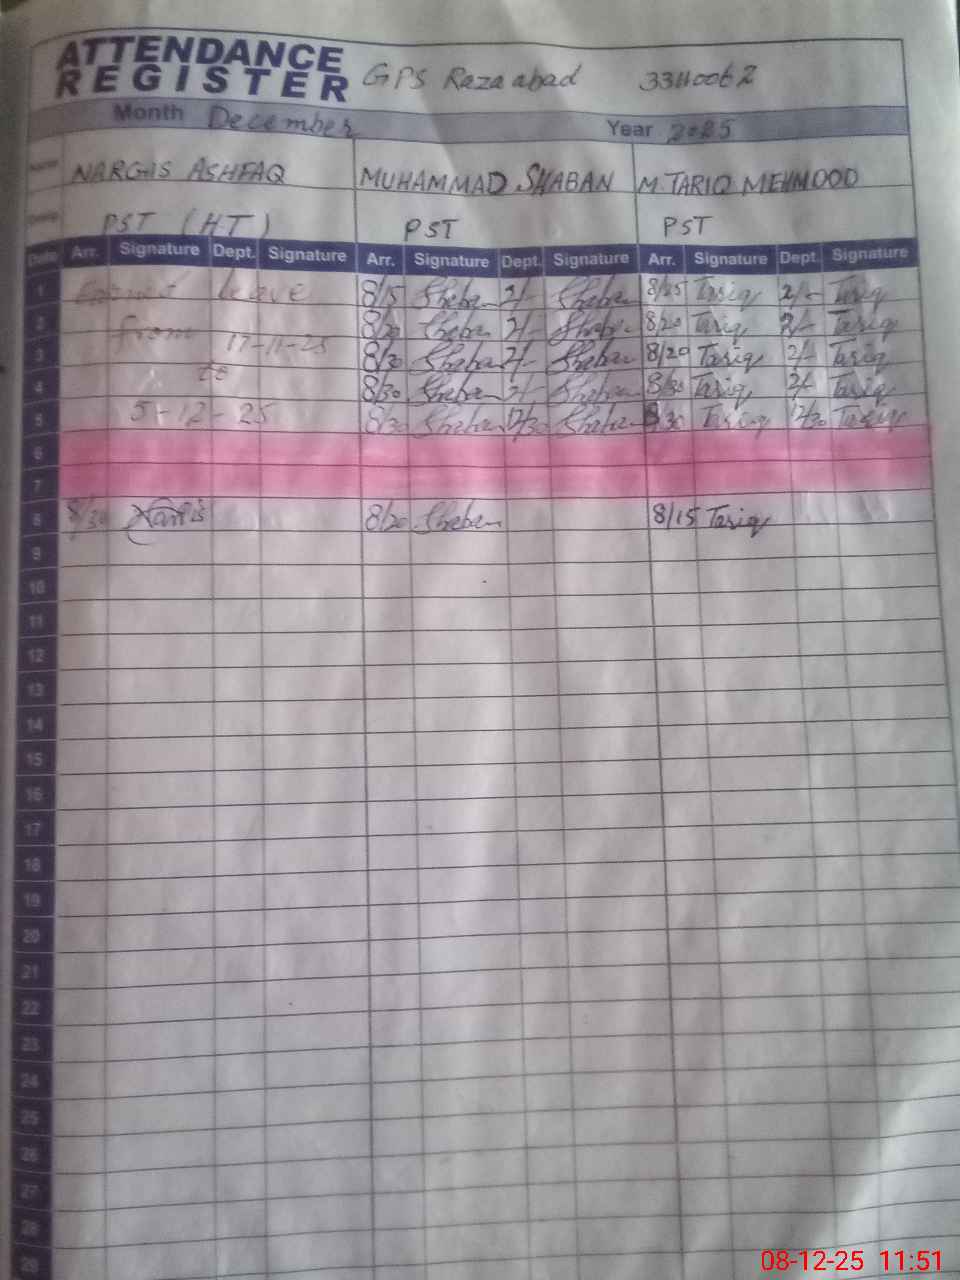 ATTENDANCE
REGISTER GPS Raza abad 33110062
Month December Year 2025
Name NARGIS ASHFAQ MUHAMMAD SHABAN M. TARIQ MEHMOOD
PST (HT) PST PST
Date Arr. Signature Dept. Signature Arr. Signature Dept. Signature Arr. Signature Dept. Signature
1 Leave 8/15 Shaban 2/- Shaban 8/25 Tariq 2/- Tariq
2 from 8/20 Shaban 2/- Shaban 8/20 Tariq 2/- Tariq
3 17-11-25 8/30 Shaban 2/- Shaban 8/20 Tariq 2/- Tariq
4 to 8/30 Shaban 2/- Shaban 8/30 Tariq 2/- Tariq
5 5-12-25 8/30 Shaban 12/30 Shaban 8/30 Tariq 12/30 Tariq
6
7
8 8/30 Nargis 8/20 Shaban 8/15 Tariq
9
10
11
12
13
14
15
16
17
18
19
20
21
22
23
24
25
26
27
28
29
08-12-25 11:51